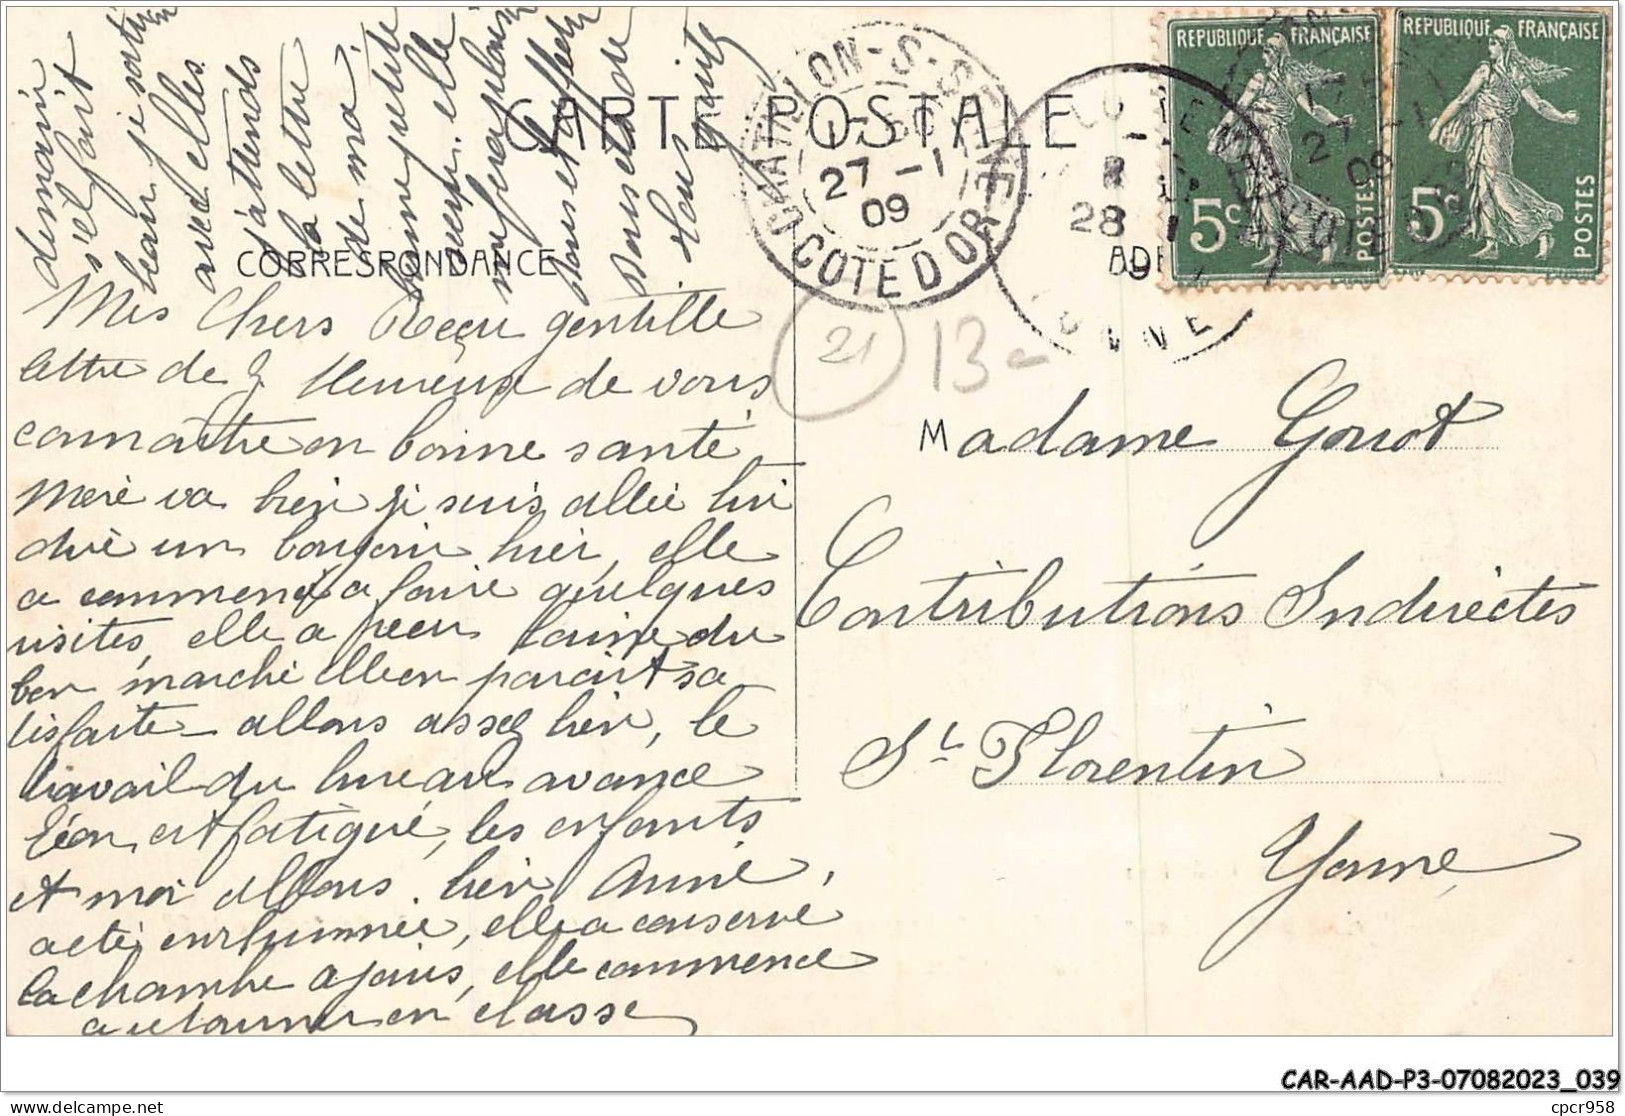 CARTE POSTALE
CORRESPONDANCE
REPUBLIQUE FRANÇAISE
5c
POSTES
REPUBLIQUE FRANÇAISE
5c
POSTES
CHATILLON-S-SEINE
27 -1
09
COTE D'OR
28 1
21
13-
Mes Chers Reçu gentille
lettre de J Heureuse de vous
connaître en bonne santé
Mère va bien je suis allée lui
dire un bonjour hier, elle
a commencé a faire quelques
visites, elle a reçu laine du
bon marché elle en parait sa
tisfaite - allons assez bien, le
travail du bureau avance
Léon est fatigué, les enfants
et moi allons bien Anné,
a été enrhumée, elle a conservé
la chambre 2 jours, elle commence
a retourner en classe
demain
s'il fait
beau je sortirai
avec elles
j'attends
la lettre
de ma
bonne petite
sœur. elle
me fera plaisir
Tous et affectu
Louis
Madame Gouot
Contributions Indirectes
St Florentin
Yonne
CAR-AAD-P3-07082023_039
delcampe.net
cpcr958